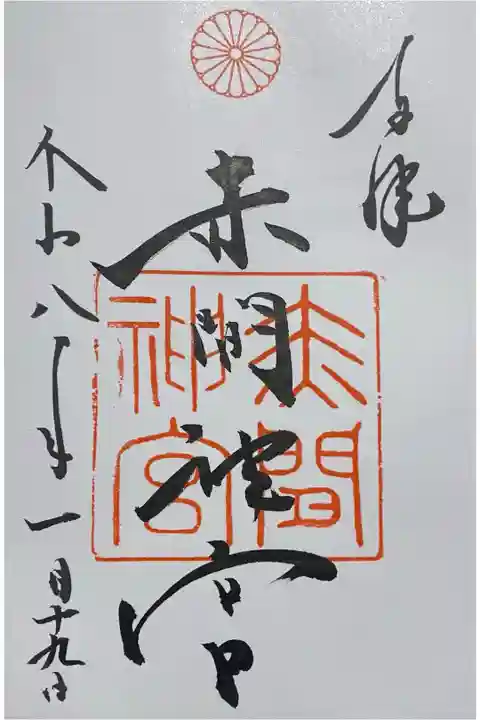 奉拝
赤間神宮
赤間
神宮
令和八年一月十九日